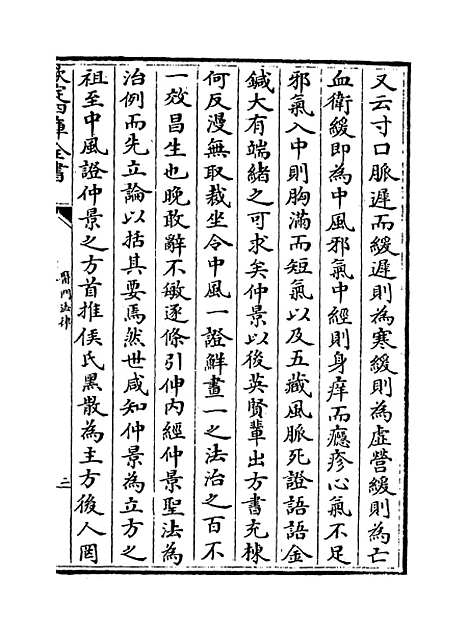 又云寸口脈遲而緩遲則為寒緩則為虛營緩則為亡
血衛緩即為中風邪氣中經則身痒而癮疹心氣不足
邪氣入中則胸滿而短氣以及五藏風脈死證語語金
鍼大有端緒之可求矣仲景以後英賢輩出方書充棟
何反漫無取裁坐令中風一證鮮畫一之法治之百不
一效昌生也晚敢辭不敏逐條引仲內經仲景聖法為
治例而先立論以括其要焉然世咸知仲景為立方之
祖至中風證仲景之方首推侯氏黑散為主方後人罔
欽定四庫全書
醫門法律
二